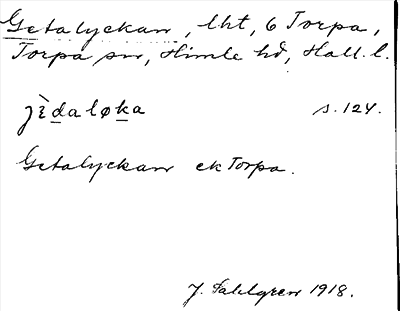 Getalyckan, lht, 6 Torpa,
Torpa sn, Himle hd, Hall. l.
jèdaløka s. 124.
Getalyckan ek Torpa.
J. Sahlgren 1918.